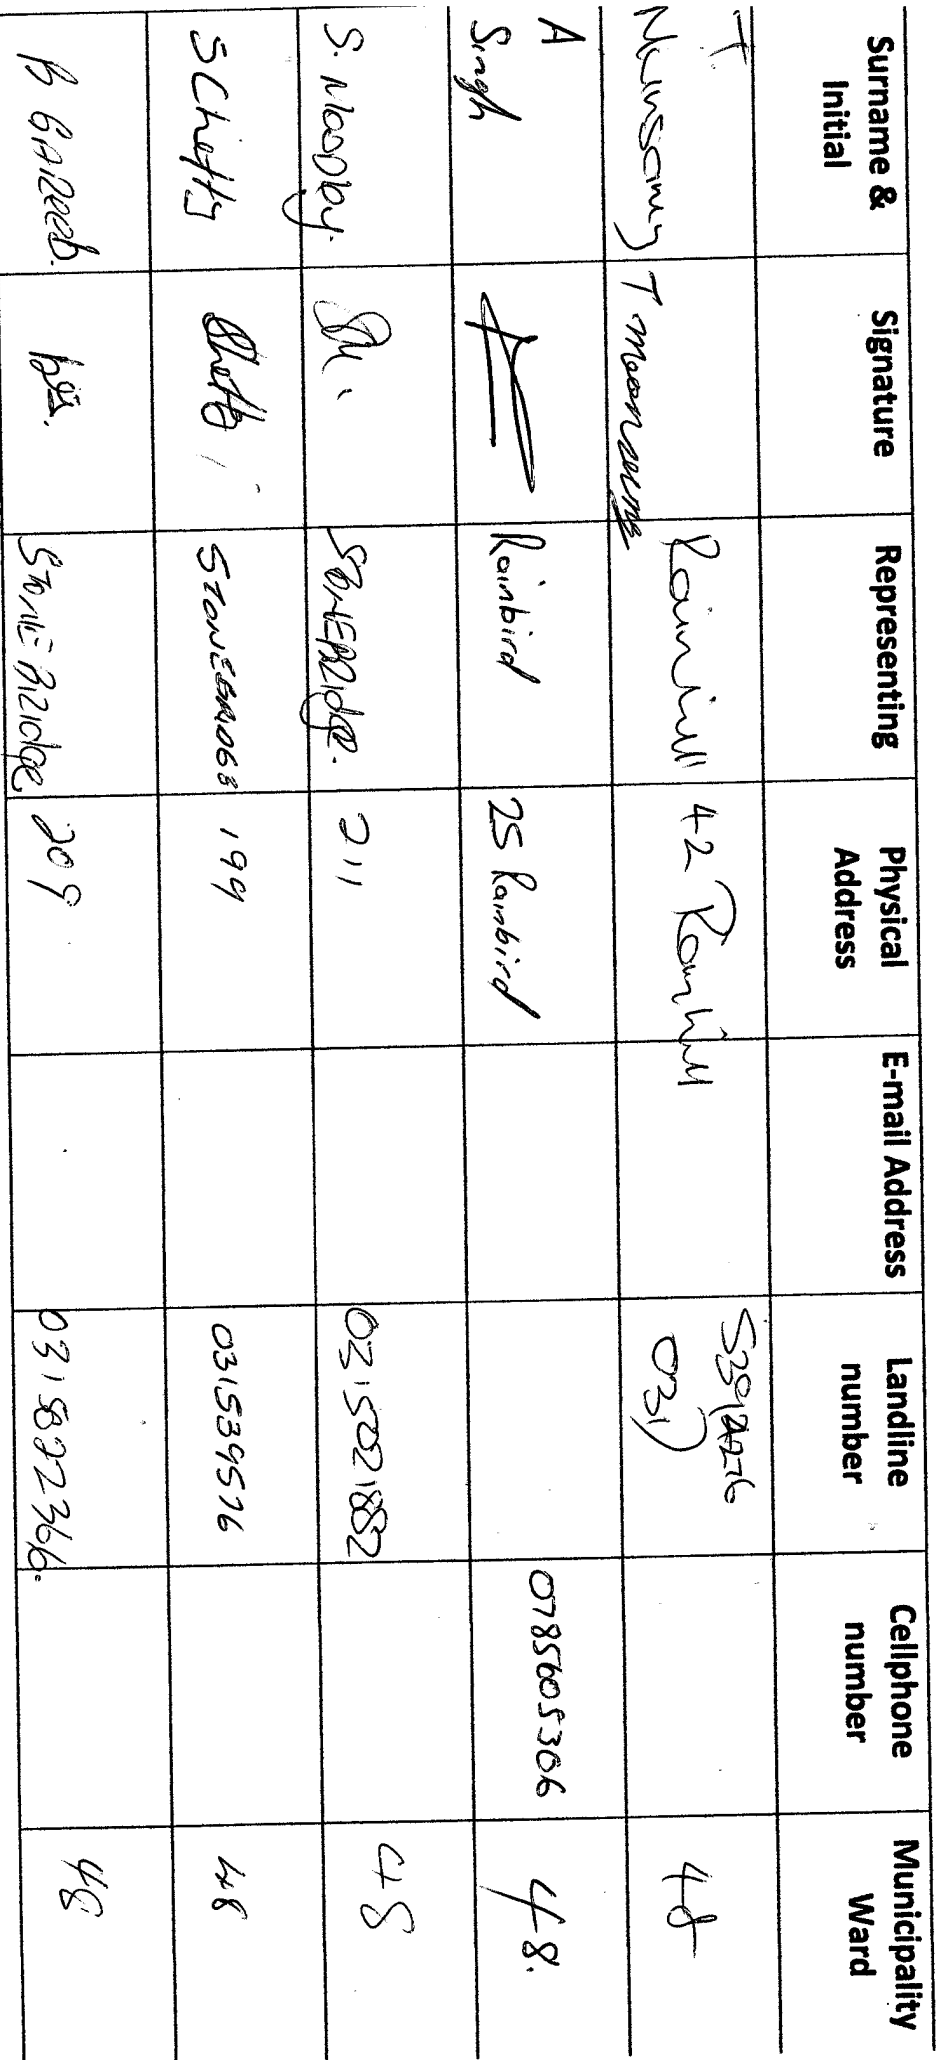 Surname & Initial Signature Representing Physical Address E-mail Address Landline number Cellphone number Municipality Ward
T Munsamy T moonsamy Rainhill 42 Rainhill 031) 48
A Singh Rainbird 25 Rainbird 0785605306 48.
S. Moodley. STONEBRIdge. 211 0315021882 48
S Chetty Chetty STONEBRIDGE 199 031539576 48
STONEBRIdge 209 031 5822366. 48